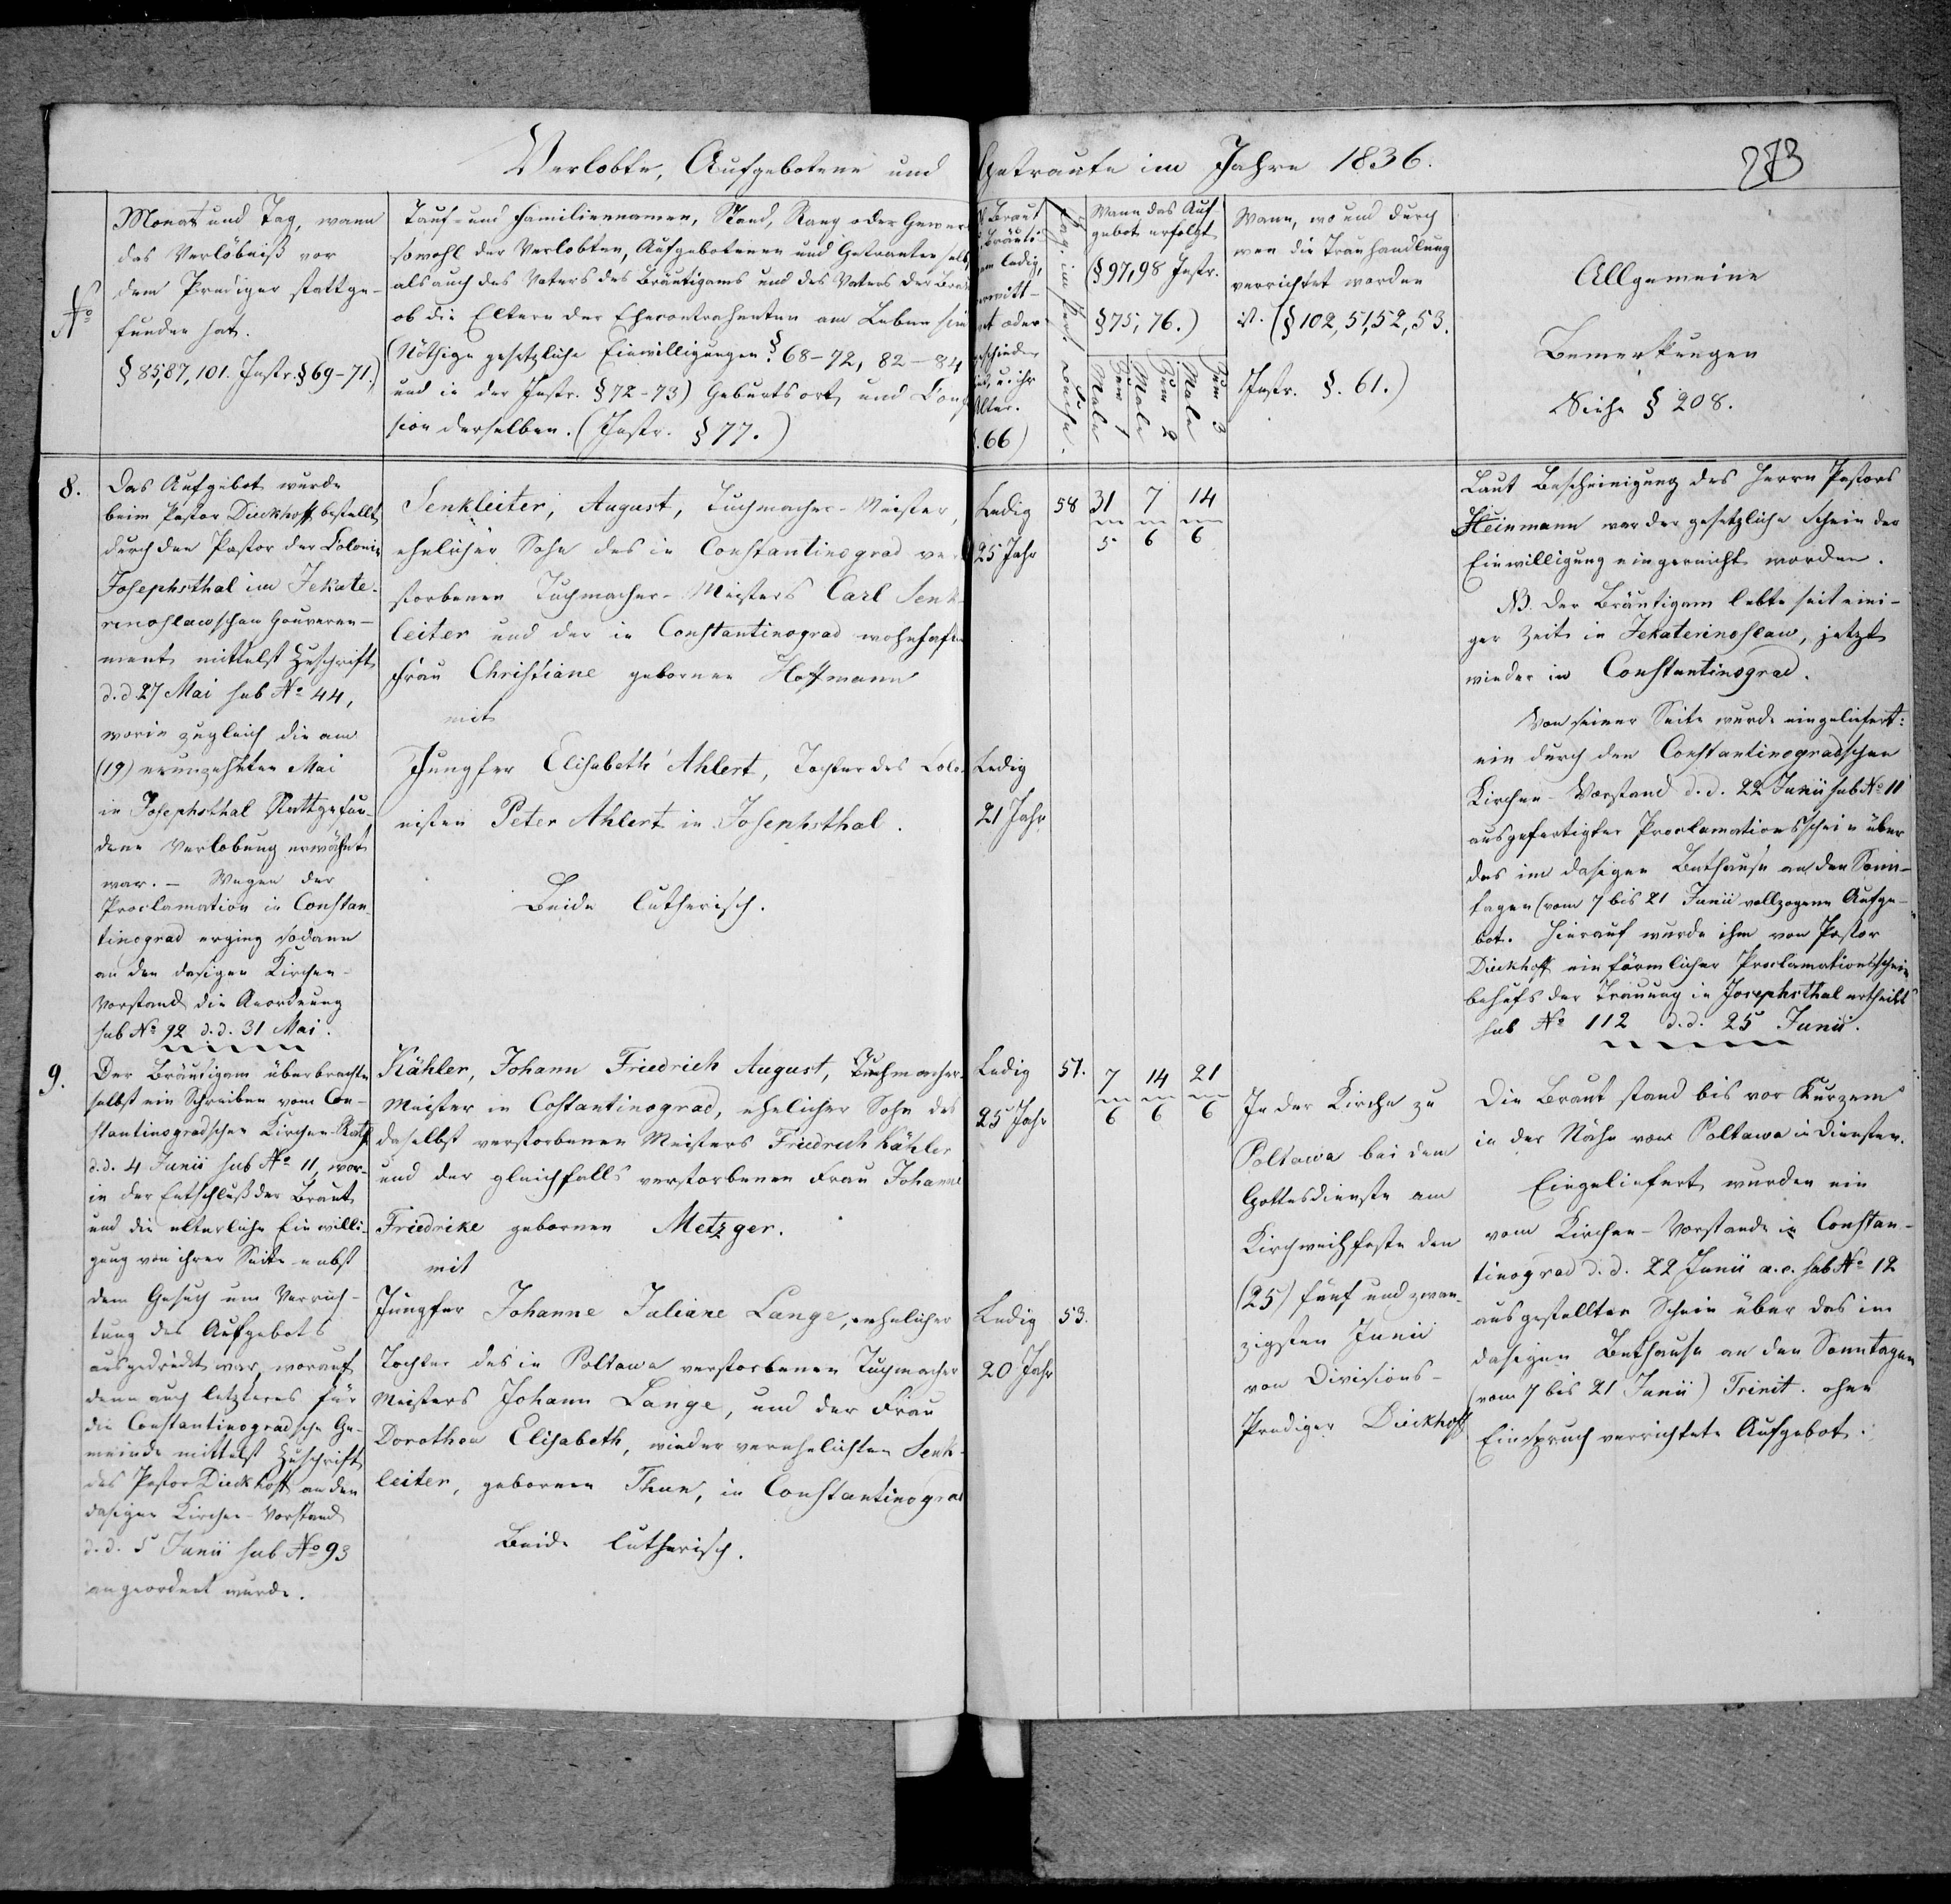 Verlobte, Aufgebotene und Getraute im Jahre 1836.
273
No
Monat und Tag, wann
das Verlöbniß vor
dem Prediger stattge-
funden hat.
§ 85, 87, 101. Instr. § 69-71.)
Tauf- und Familiennamen, Stand, Rang oder Gewer
sowohl der Verlobten, Aufgebotenen und Getrauten selb
als auch des Vaters des Bräutigams und des Vaters der Bra
ob die Eltern der Ehecontrahenten am Leben sin
(Nöthige gesetzliche Einwilligungen § 68-72, 82-84
und in der Instr. § 72-73) Geburtsort und Conf
sion derselben. (Instr. § 77.)
Braut
Bräuti
am ledig,
erwitt-
et oder
geschieden
ind, u. ihr
Alter.
§. 66)
Wann das Auf-
gebot erfolgt
(§ 97, 98 Instr.
§ 75, 76.)
Zum 1
Male
Zum 2
Male
Zum 3
Male
Wann, wo und durch
wen die Trauhandlung
verrichtet worden
ist. (§ 102, 51, 52, 53.
Instr. §. 61.)
Allgemeine
Bemerkungen
Siehe § 208.
8.
Das Aufgebot wurde
beim Pastor Dieckhoff bestellt
durch den Pastor der Colonie
Josephsthal im Jekate-
rinoslawschen Gouverne-
ment mittelst Zuschrift
d. d 27 Mai sub No 44,
worin zugleich die am
(19) neunzehnten Mai
in Josephsthal stattgefun-
dene Verlobung erwähnt
war. - Wegen der
Proclamation in Constan-
tinograd erging sodann
an den dasigen Kirchen-
Vorstand die Anordnung
sub No 92 d. d. 31 Mai.
Senkleiter, August, Tuchmacher-Meister,
ehelicher Sohn des in Constantinograd ver
storbenen Tuchmacher-Meisters Carl Senk-
leiter und der in Constantinograd wohnhaften
Frau Christiane gebornen Hoffmann
mit
Jungfer Elisabeth Ahlert, Tochter des Colo-
nisten Peter Ahlert in Josephsthal.
Beide lutherisch.
Ledig
25 Jahr
58
31
5
7
6
14
6
Ledig
21 Jahr
Laut Bescheinigung des Herrn Pastors
Heinmann war der gesetzliche Schein der
Einwilligung eingereicht worden.
NB. Der Bräutigam lebte seit eini-
ger Zeit in Jekaterinoslaw, jetzt
wieder in Constantinograd.
Von seiner Seite wurde eingeliefert:
ein durch den Constantinogradschen
Kirchen-Vorstand d. d. 22 Junii sub No 11
ausgefertigter Proclamationsschein über
das im dasigen Bethause an den Sonn-
tagen (vom 7 bis 21 Junii vollzogene Aufge-
bot. Hierauf wurde ihm von Pastor
Dieckhoff ein förmlicher Proclamationsschein
behufs der Trauung in Josephsthal ertheilt
sub No 112 d. d. 25 Junii.
9.
Der Bräutigam überbrachte
selbst ein Schreiben vom Con-
stantinogradschen Kirchen-Rath
d. d. 4 Junii sub No 11, wor-
in der Entschluß der Braut
und die elterliche Einwilli-
gung von ihrer Seite nebst
dem Gesuch um Verrich-
tung des Aufgebots
ausgedrückt war, worauf
denn auch letzteres für
die Constantinogradsche Ge-
meinde mittelst Zuschrift
des Pastor Dieckhoff an den
dasigen Kirchen-Vorstand
d. d. 5 Junii sub No 93
angeordnet wurde.
Kähler, Johann Friedrich August, Tuchmacher-
Meister in Costantinograd, ehelicher Sohn des
daselbst verstorbenen Meisters Friedrich Kähler
und der gleichfalls verstorbenen Frau Johanne
Friedrike gebornen Metzger.
mit
Jungfer Johanne Juliane Lange, ehelicher
Tochter des in Poltawa verstorbenen Tuchmacher
Meisters Johann Lange, und der Frau
Dorothea Elisabeth, wieder verehelichten Senk-
leiter, gebornen Thun, in Constantinograd
Beide lutherisch.
Ledig
25 Jahr
57.
7
6
14
6
21
6
Ledig
20 Jahr
53.
In der Kirche zu
Poltawa bei dem
Gottesdienste am
Kirchweihfeste den
(25) fünf und zwan-
zigsten Junii
von Divisions-
Prediger Dieckhoff
Die Braut stand bis vor Kurzem
in der Nähe von Poltawa in Diensten.
Eingeliefert wurden ein
vom Kirchen-Vorstande in Constan-
tinograd d. d. 22 Junii a. c. sub No 12
ausgestellter Schein über das im
dasigen Bethause an den Sonntagen
(vom 7 bis 21 Junii) Trinit. ohne
Einspruch verrichtete Aufgebot.